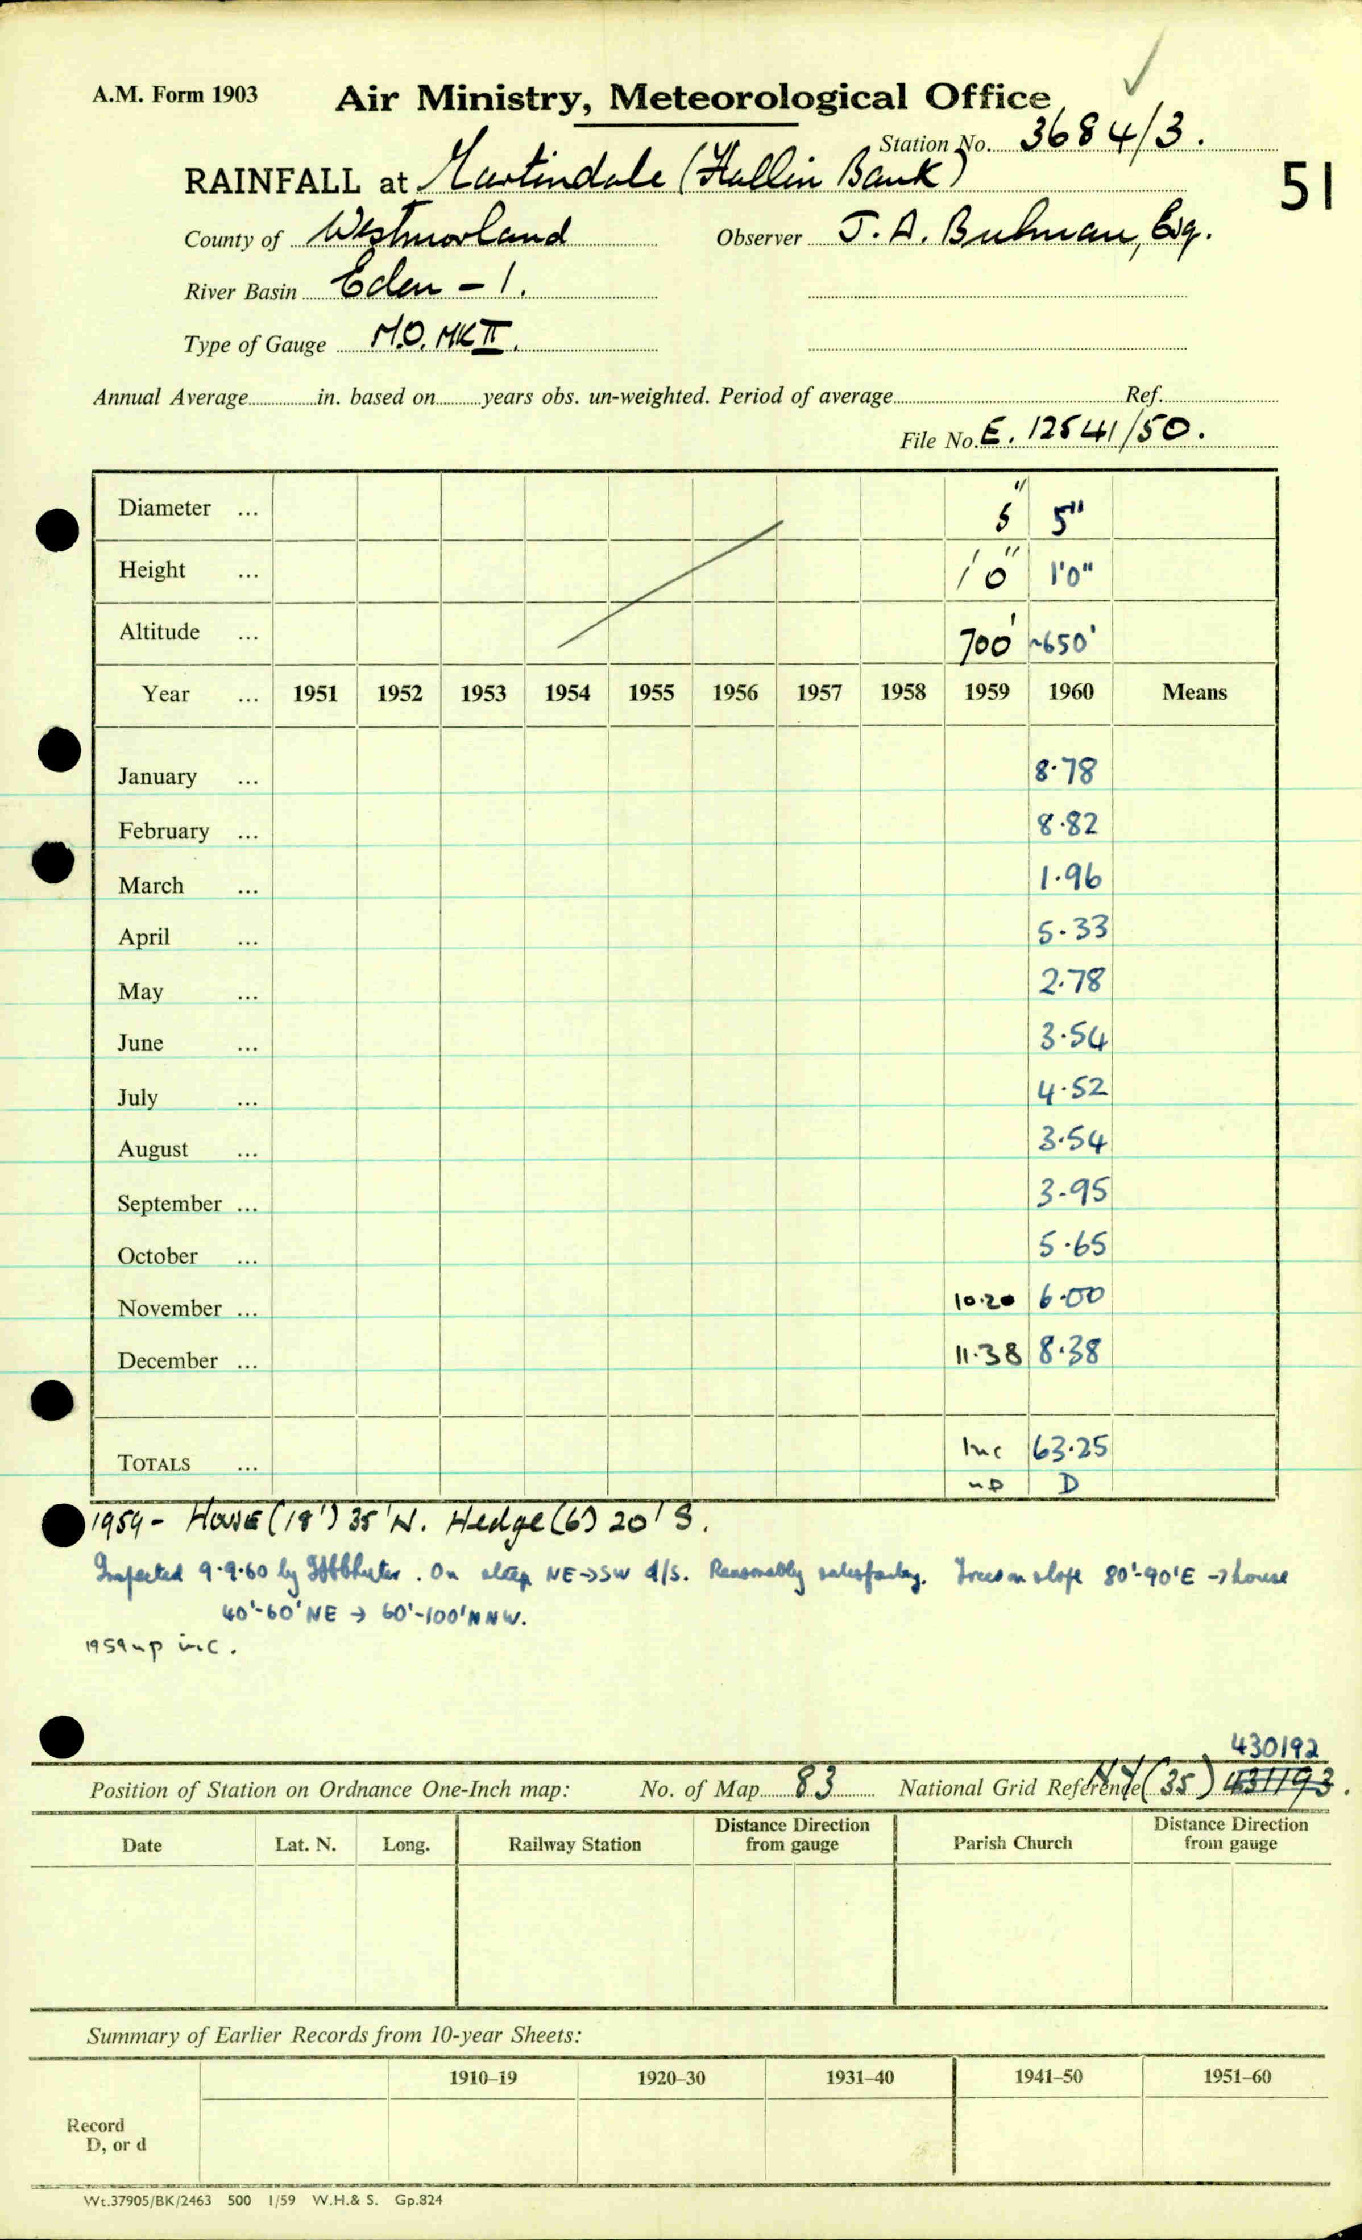 A.M. Form 1903
Air Ministry, Meteorological Office
Station No. 3684/3.
RAINFALL at Martindale (Hallin Bank)
51
County of Westmorland Observer J. A. Bulman, Esq.
River Basin Eden - 1.
Type of Gauge M.O. MK II.
Annual Average in. based on years obs. un-weighted. Period of average Ref.
File No. E. 12541/50.
Diameter ... 5" 5"
Height ... 1'0" 1'0"
Altitude ... 700' ~650'
Year ... 1951 1952 1953 1954 1955 1956 1957 1958 1959 1960 Means
January ... 8.78
February ... 8.82
March ... 1.96
April ... 5.33
May ... 2.78
June ... 3.54
July ... 4.52
August ... 3.54
September ... 3.95
October ... 5.65
November ... 10.20 6.00
December ... 11.38 8.38
TOTALS ... Inc 63.25
up D
1959 - House (18') 35' N. Hedge (6') 20' S.
Inspected 9.9.60 by . On steep NE→SW d/s. Reasonably satisfactory. Trees on slope 80'-90'E → house
40'-60' NE → 60'-100' NNW.
1959 up inc.
430192
Position of Station on Ordnance One-Inch map: No. of Map 83 National Grid Reference NY (35) 431193.
Date Lat. N. Long. Railway Station Distance Direction from gauge Parish Church Distance Direction from gauge
Summary of Earlier Records from 10-year Sheets:
1910–19 1920–30 1931–40 1941–50 1951–60
Record
D, or d
Wt.37905/BK/2463 500 1/59 W.H.& S. Gp.824